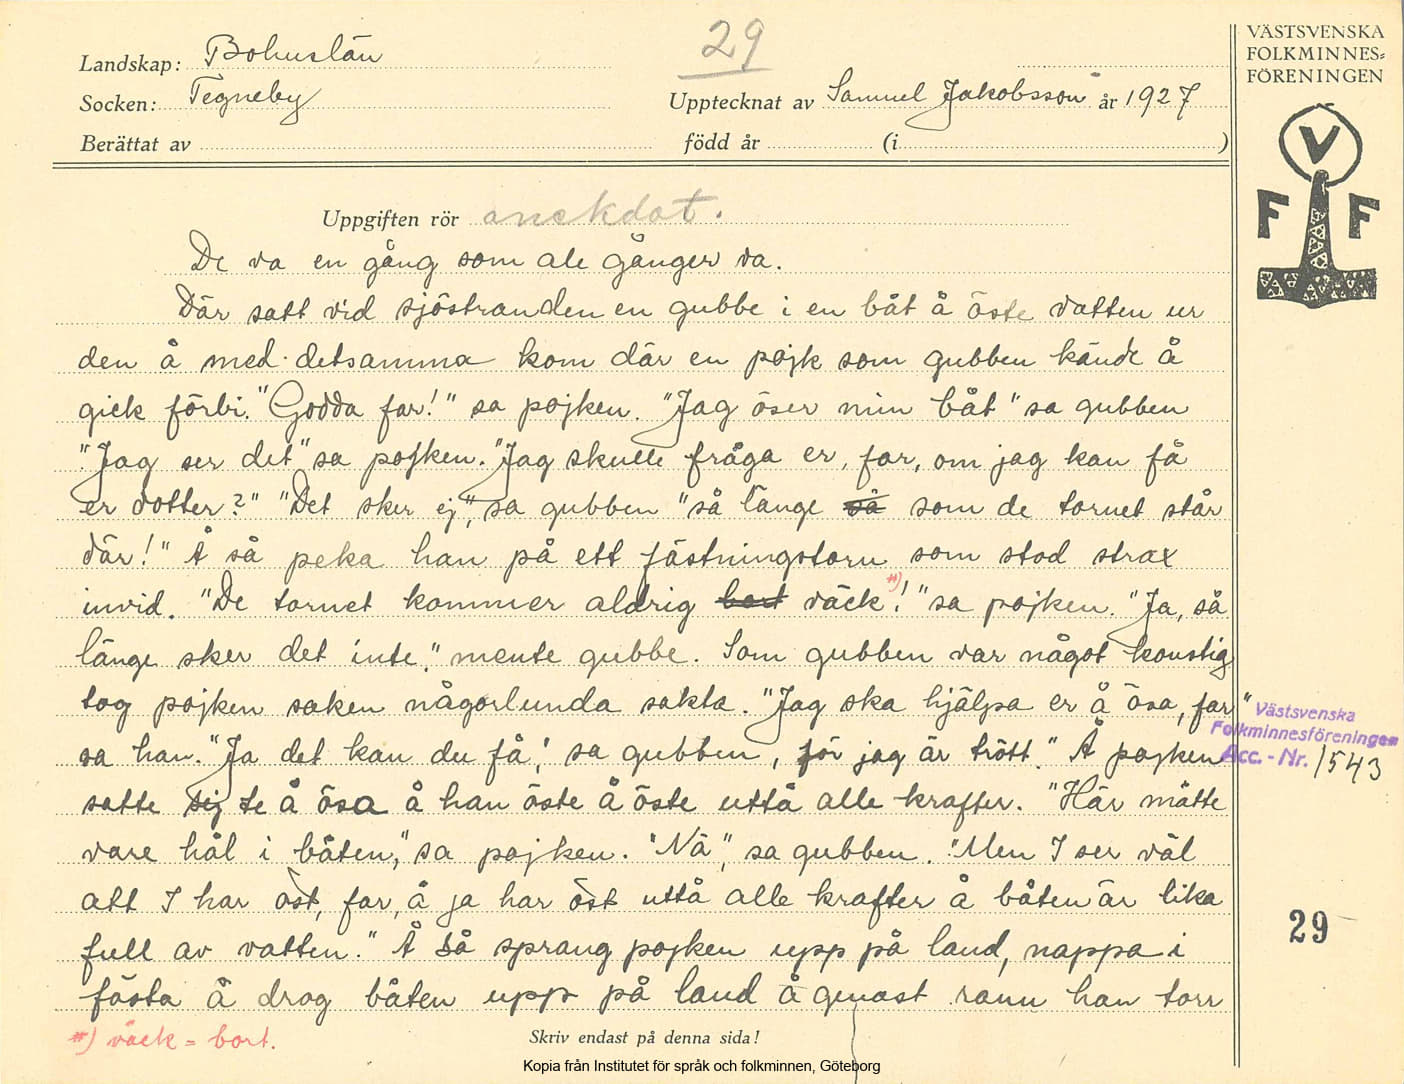 Landskap: Bohuslän
Socken: Tegneby
Berättat av
29
Upptecknat av Samuel Jakobsson år 1927
född år (i )
VÄSTSVENSKA
FOLKMINNES=
FÖRENINGEN
V
F F
Uppgiften rör anekdot.
De va en gång som ale gånger va.
Där satt vid sjöstranden en gubbe i en båt å öste vatten ur
den å med detsamma kom där en pojk som gubben kände å
gick förbi. "Godda far!" sa pojken. "Jag öser min båt" sa gubben
"Jag ser det" sa pojken. "Jag skulle fråga er, far, om jag kan få
er dotter?" "Det sker ej", sa gubben "så länge så som de tornet står
där!" Å så peka han på ett fästningstorn som stod strax
invid. "De tornet kommer aldrig bort väck #)!" sa pojken. "Ja, så
länge sker det inte", mente gubbe. Som gubben var något konstig
tog pojken saken någorlunda sakta. "Jag ska hjälpa er å ösa, far"
sa han. "Ja det kan du få", sa gubben, för jag är trött." Å pojken
satte sig te å ösa å han öste å öste uttå alle krafter. "Här måtte
vare hål i båten," sa pojken. "Nä", sa gubben. "Men I ser väl
att I har öst, far, å ja har öst uttå alle krafter å båten är lika
full av vatten." Å så sprang pojken upp på land, nappa i
fästa å drog båten upp på land å genast rann han torr
#) väck = bort.
Västsvenska
Folkminnesföreningen
Acc.-Nr. 1543
29
Skriv endast på denna sida!
Kopia från Institutet för språk och folkminnen, Göteborg